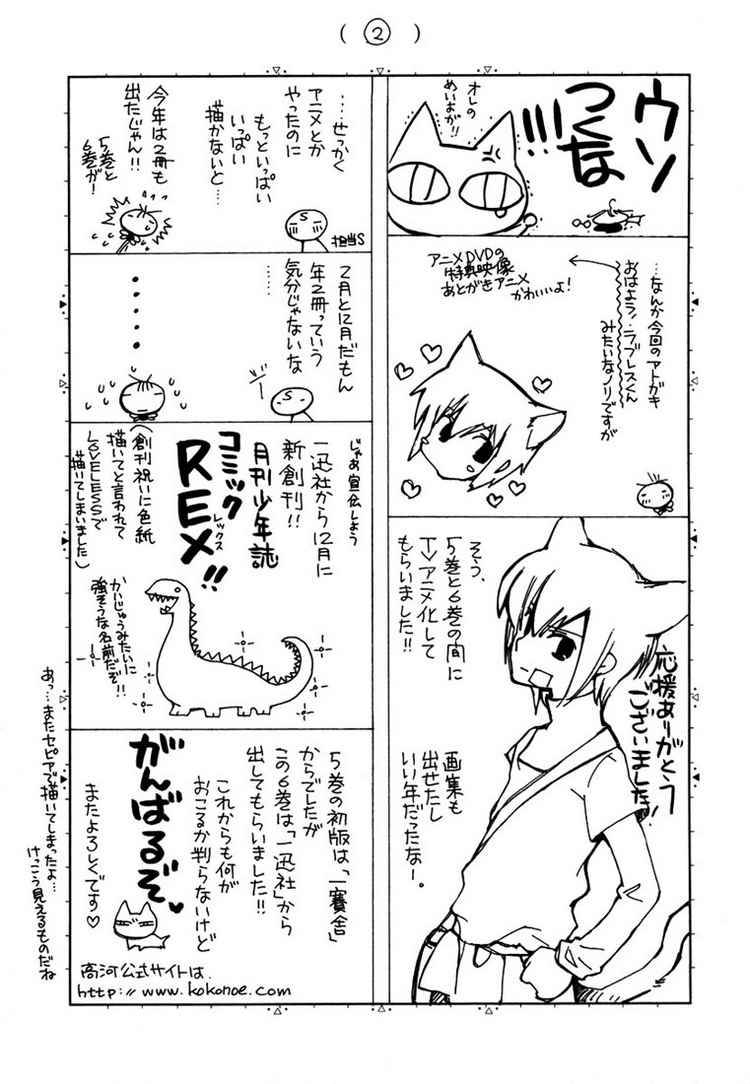 (②)
ウソ
つくな
!!!
オレの
めいよが!!
…なんか今回のアトガキ
おはよう!ラブレスくん
みたいなノリですが
アニメDVDの
特典映像
あとがきアニメ
かわいいよ!
そう、
5巻と6巻の間に
TVアニメ化して
もらいました!!
応援ありがとう
ございました!
画集も
出せたし
いい年だったなー。
…せっかく
アニメとか
やったのに
もっといっぱい
いっぱい
描かないと…
担当S
S
今年は2冊も
出たじゃん!!
5巻と
6巻が!
2月と12月だもん
年2冊っていう
気分じゃないな
……
S
じゃあ宣伝しよう
一迅社から12月に
新創刊!!
月刊少年誌
コミック
REX!!
レックス
(創刊祝いに色紙
描いてと言われて
LOVELESSで
描いてしまいました)
かいじゅうみたいに
強そうな名前だぞ!!
5巻の初版は、「一賽舎」
からでしたが
この6巻は「一迅社」から
出してもらいました!!
これからも何が
おこるか判らないけど
がんばるぞ
またよろしくです♡
高河公式サイトは.
http://www.kokonoe.com
あっ…またセピアで描いてしまったよ…
けっこう見えるものだね